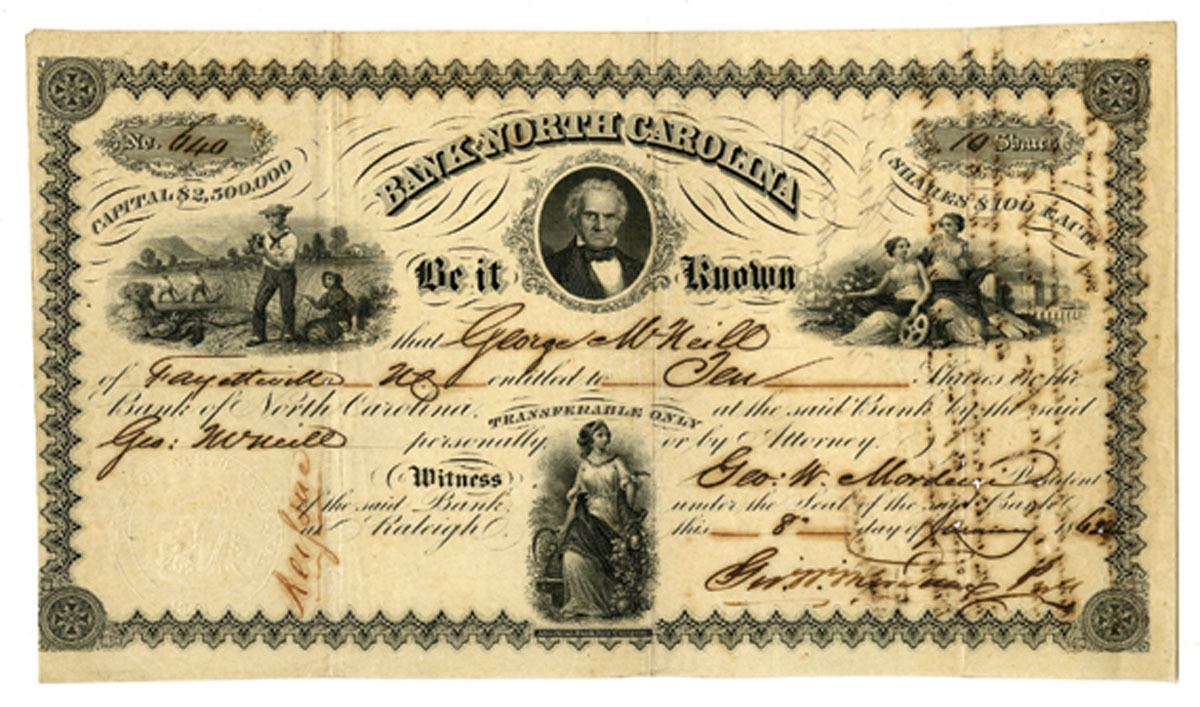 No. 640
10 Shares
CAPITAL $2,500.000
BANK NORTH CAROLINA
SHARES $100 EACH
Be it Known
that George McNeill
of Fayetteville NC entitled to Ten Shares in the
Bank of North Carolina, TRANSFERABLE ONLY at the said Bank by the said
Geo: McNeill personally or by Attorney.
Witness Geo: W. Mordecai President
of the said Bank under the Seal of the said Bank
at Raleigh this 8th day of 186
Geo. W. Mordecai Prest